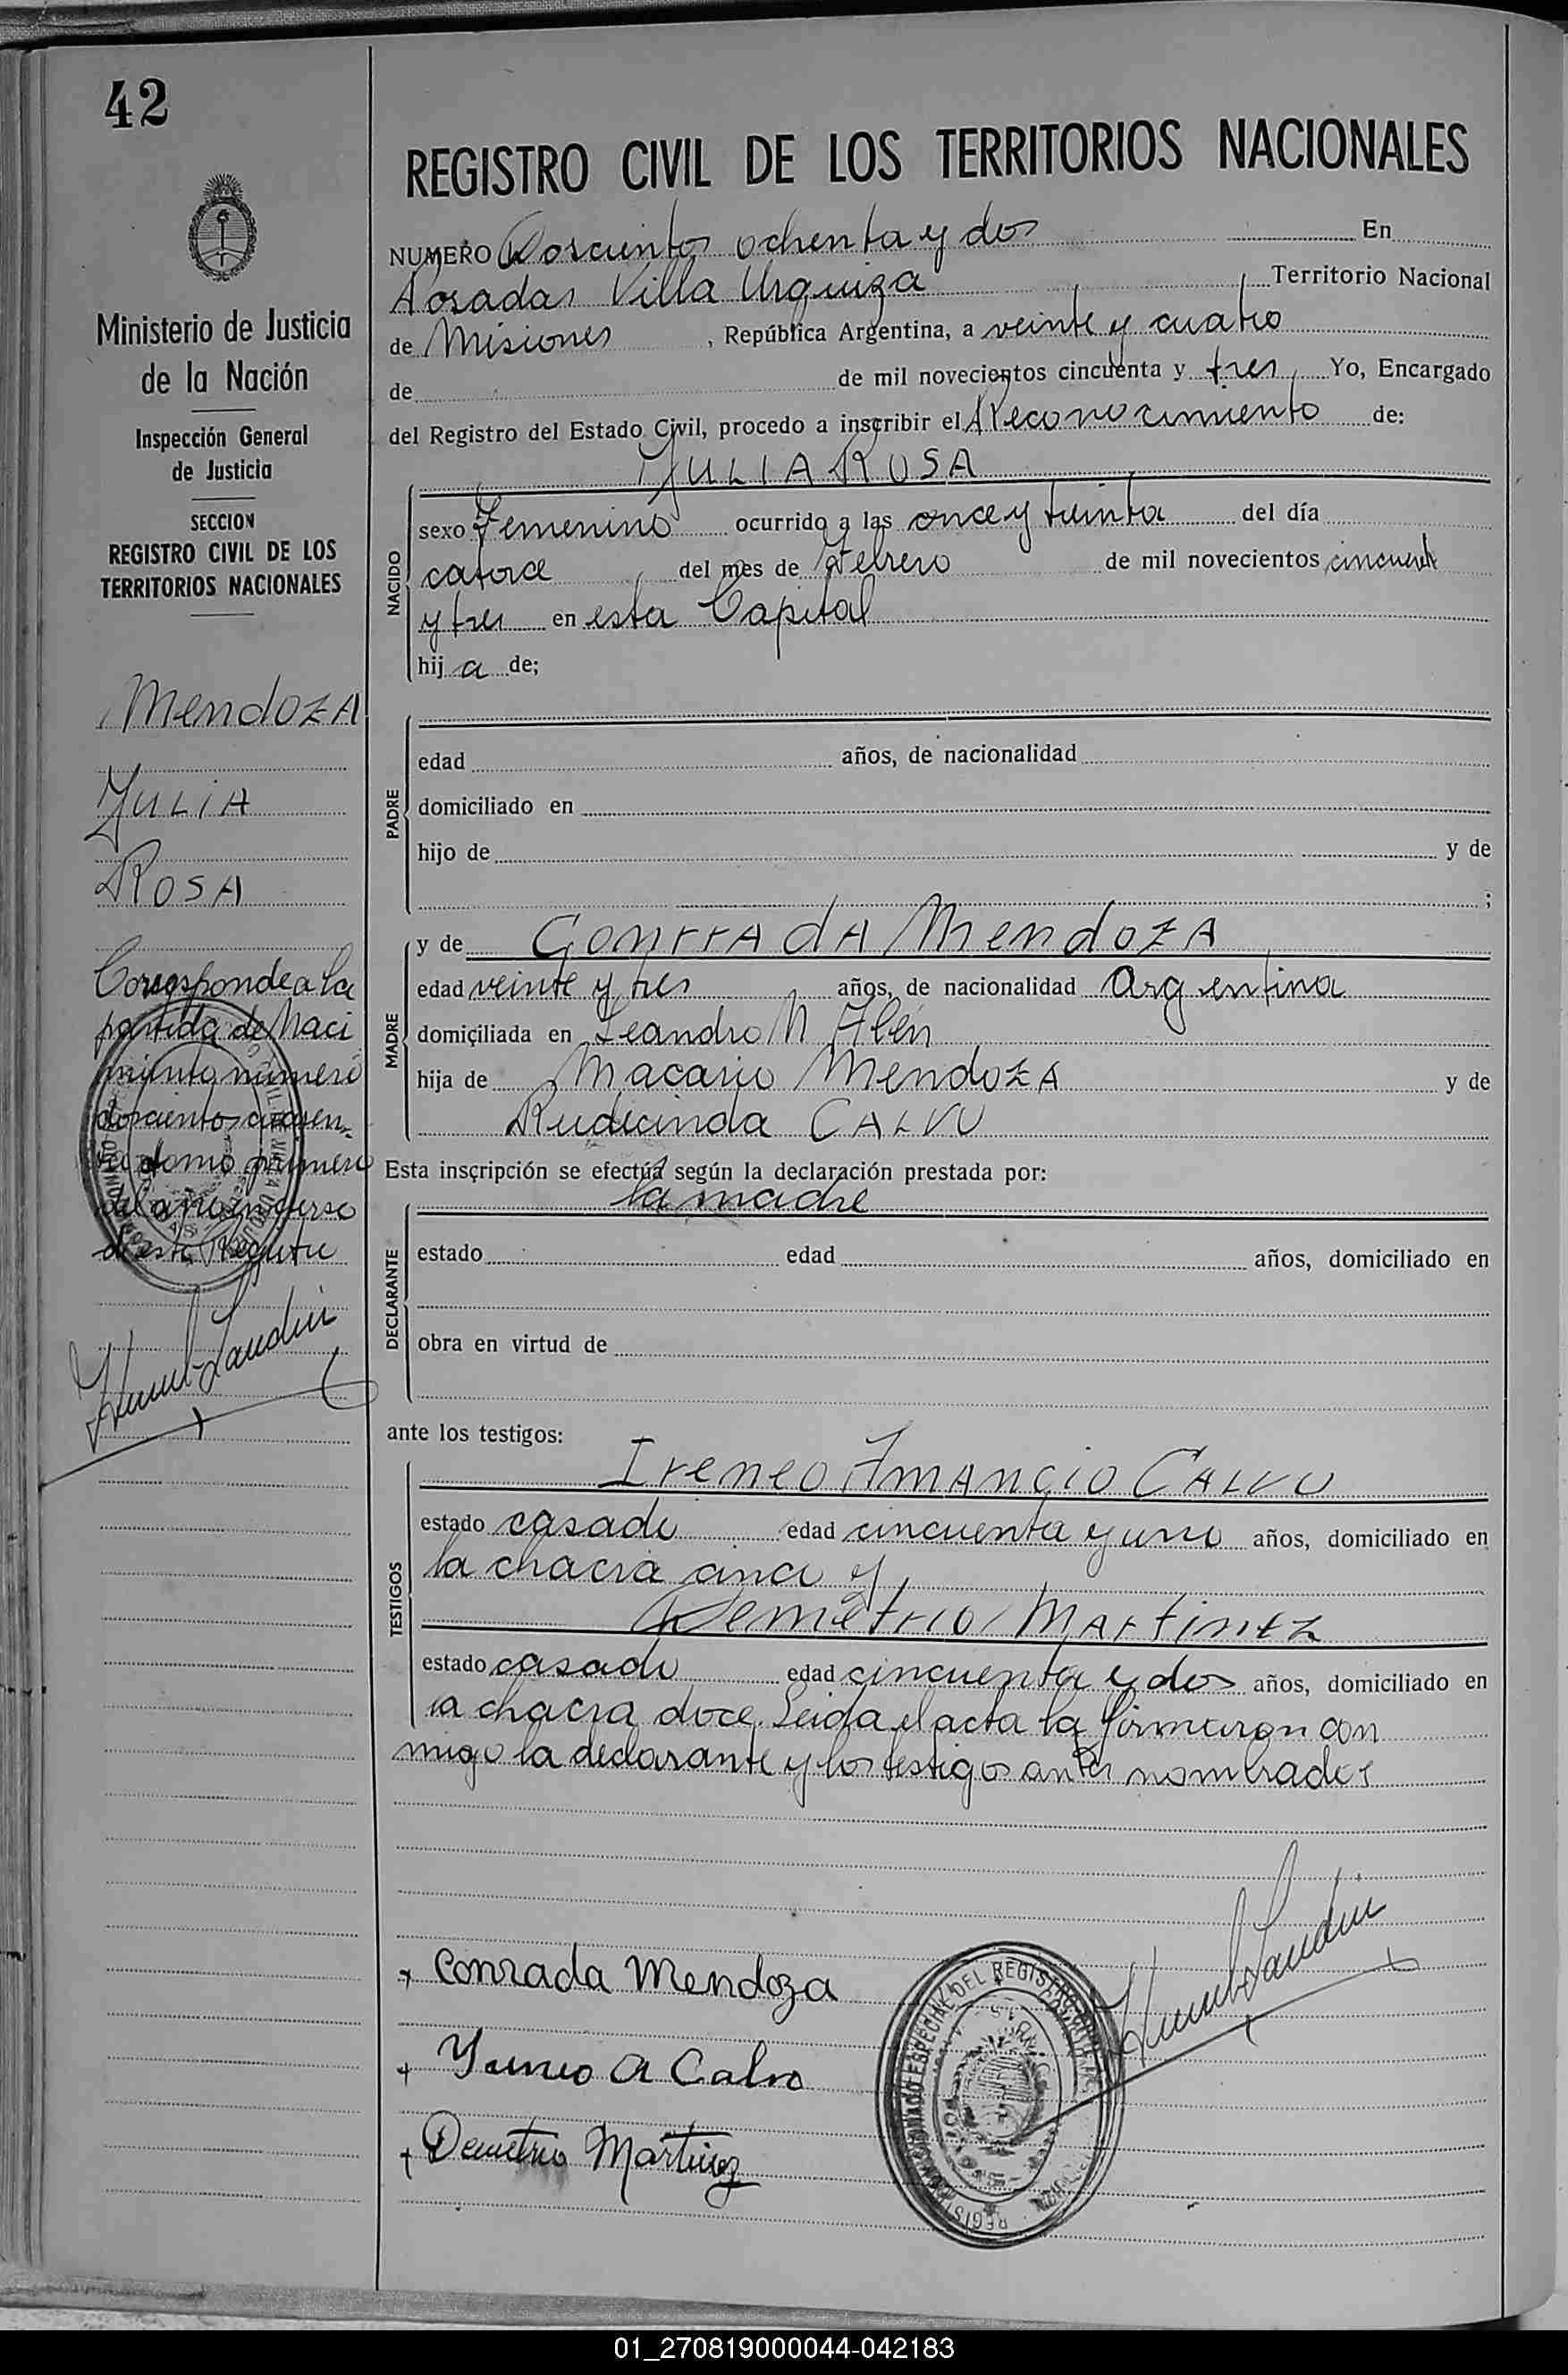 42
Ministerio de Justicia
de la Nación
Inspección General
de Justicia
SECCION
REGISTRO CIVIL DE LOS
TERRITORIOS NACIONALES
Mendoza
Julia
Rosa
Corresponde a la
partida de Naci
miento numero
doscientos cuaren-
ta tomo primero
del año en curso
de este Registro
REGISTRO CIVIL DE LOS TERRITORIOS NACIONALES
NUMERO Doscientos ochenta y dos En
Posadas Villa Urquiza Territorio Nacional
de Misiones , República Argentina, a veinte y cuatro
de de mil novecientos cincuenta y tres Yo, Encargado
del Registro del Estado Civil, procedo a inscribir el Reconocimiento de:
JULIA ROSA
NACIDO
sexo Femenino ocurrido a las once y treinta del día
catorce del mes de Febrero de mil novecientos
y tres en esta Capital
hija de;
PADRE
edad años, de nacionalidad
domiciliado en
hijo de y de
;
MADRE
y de Conrrada Mendoza
edad veinte y tres años, de nacionalidad Argentina
domiciliada en Leandro N Alén
hija de Macario Mendoza y de
Rudecinda CALVO
Esta inscripción se efectúa según la declaración prestada por:
la madre
DECLARANTE
estado edad años, domiciliado en
obra en virtud de
ante los testigos:
TESTIGOS
Ireneo Amancio Calvo
estado casado edad cincuenta y uno años, domiciliado en
la chacra once y
Demetrio Martinez
estado casado edad cincuenta y dos años, domiciliado en
la chacra doce. Leida el acta la firmaron con
migo la declarante y los testigos antes nombrados
+ Conrada Mendoza
+ Yrineo A Calvo
+ Demetrio Martinez
01_270819000044-042183